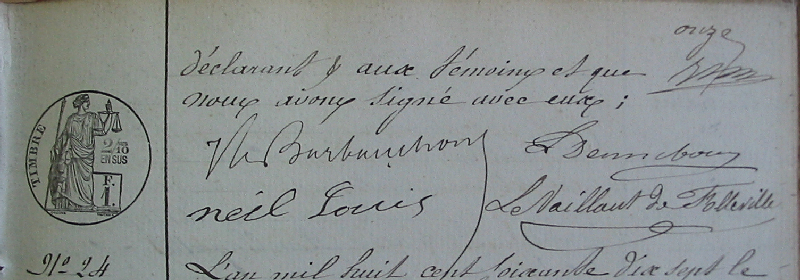 onze
déclarant & aux témoins et que
nous avons signé avec eux ;
TIMBRE
2/10
EN SUS
F.
1.
neil Louis
Le Vaillant de Folleville
N° 24
L'an mil huit cent soixante dix sept le